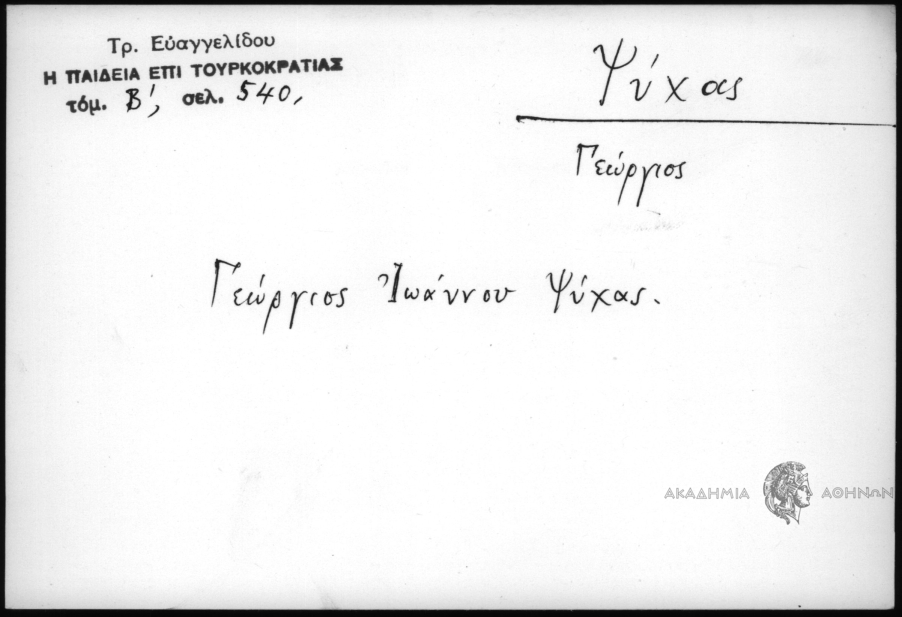 Τρ. Εὐαγγελίδου
Η ΠΑΙΔΕΙΑ ΕΠΙ ΤΟΥΡΚΟΚΡΑΤΙΑΣ
τόμ. Β', σελ. 540,
Ψύχας
Γεώργιος
Γεώργιος Ἰωάννου Ψύχας.
ΑΚΑΔΗΜΙΑ ΑΘΗΝΩΝ